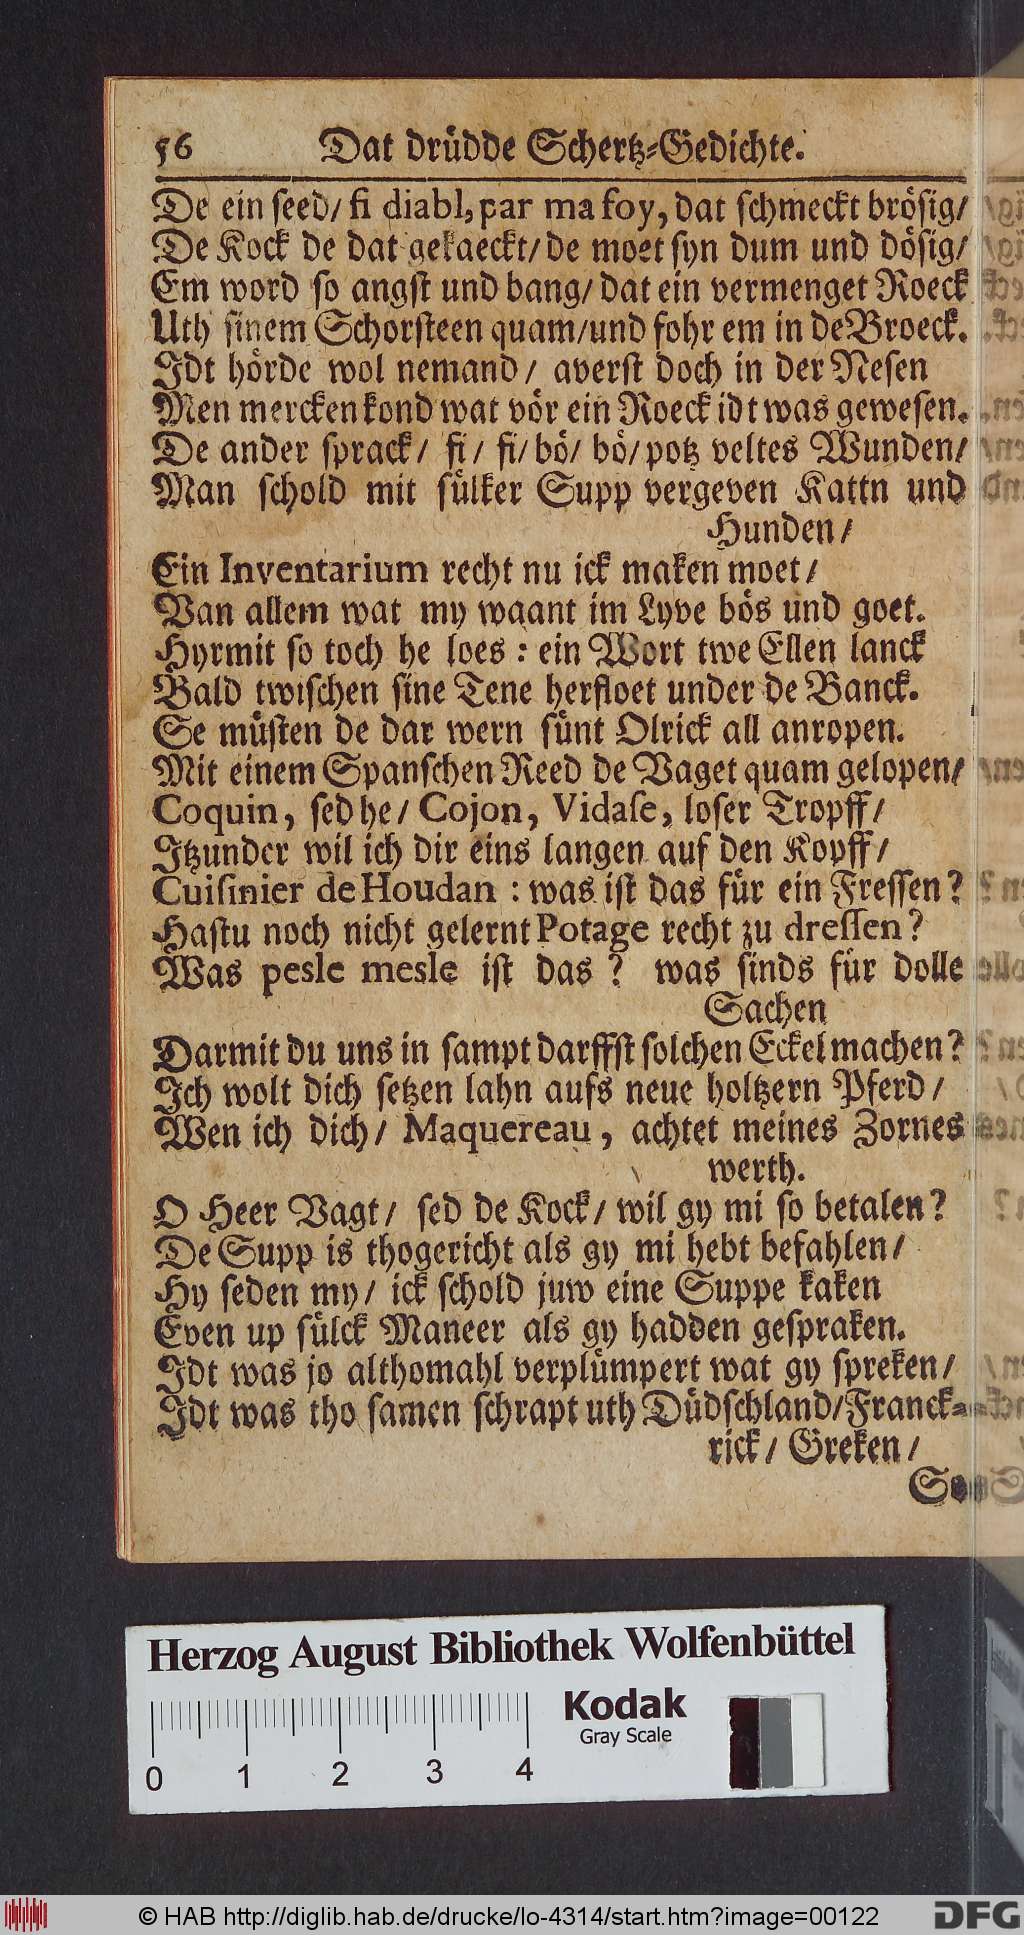 56 Dat drüdde Schertz-Gedichte.
De ein seed/ fi diabl, par ma foy, dat schmeckt brösig/
De Kock de dat gekaeckt/ de moet syn dum und dösig/
Em word so angst und bang/ dat ein vermenget Roeck
Uth sinem Schorsteen quam/ und fohr em in de Broeck.
Idt hörde wol nemand/ averst doch in der Nesen
Men mercken kond wat vör ein Roeck idt was gewesen.
De ander sprack/ fi/ fi/ bö/ bö/ potz veltes Wunden/
Man schold mit sülker Supp vergeven Kattn und
Hunden/
Ein Inventarium recht nu ick maken moet/
Van allem wat my waant im Lyve bös und goet.
Hyrmit so toch he loes: ein Wort twe Ellen lanck
Bald twischen sine Tene herfloet under de Banck.
Se müsten de dar wern sünt Olrick all anropen.
Mit einem Spanschen Reed de Vaget quam gelopen/
Coquin, sed he/ Cojon, Vidase, loser Tropff/
Itzunder wil ich dir eins langen auf den Kopff/
Cuisinier de Houdan: was ist das für ein Fressen?
Hastu noch nicht gelernt Potage recht zu dressen?
Was pesle mesle ist das? was sinds für dolle
Sachen
Darmit du uns in sampt darffst solchen Eckel machen?
Ich wolt dich setzen lahn aufs neue holtzern Pferd/
Wen ich dich/ Maquereau, achtet meines Zornes
werth.
O Heer Vagt/ sed de Kock/ wil gy mi so betalen?
De Supp is thogericht als gy mi hebt befahlen/
Hy seden my/ ick schold juw eine Suppe kaken
Even up sülck Maneer als gy hadden gespraken.
Idt was jo althomahl verplümpert wat gy spreken/
Idt was tho samen schrapt uth Düdschland/ Franck-
rick/ Greken/
Herzog August Bibliothek Wolfenbüttel
Kodak
Gray Scale
0 1 2 3 4
© HAB http://diglib.hab.de/drucke/lo-4314/start.htm?image=00122
DFG